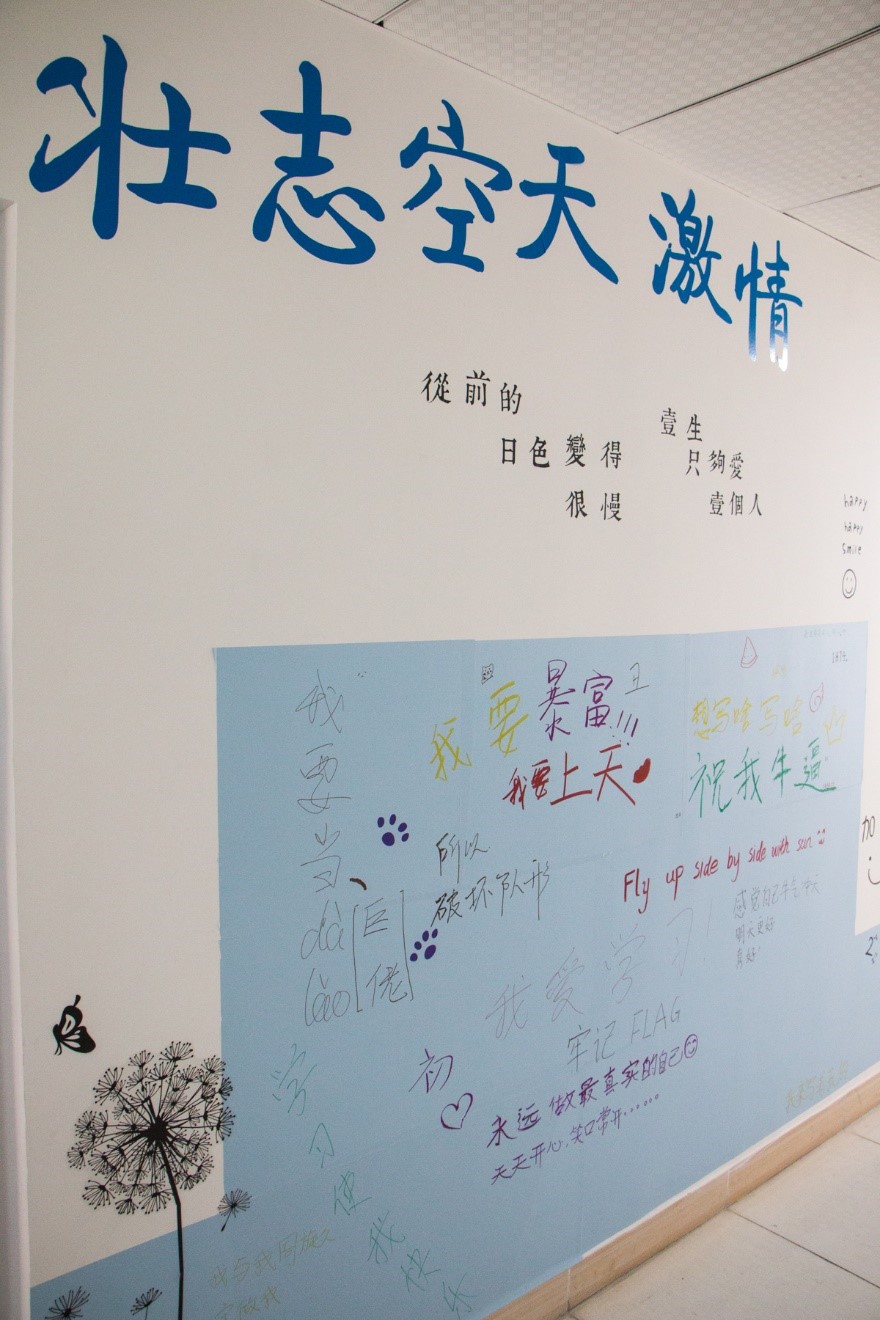 壮志空天 激情
從前的
日色變得
很慢
壹生
只夠愛
壹個人
happy
happy
smile
我要当
dà
lǎo
[巨佬]
我要暴富!!!
我要上天
想写啥写啥
祝我牛逼
所以
破坏队形
Fly up side by side with sun
感觉自己
明天更好
真好!
我爱学习!
牢记 FLAG
初
永远 做最真实的自己
天天开心,笑口常开……
学习使我快乐
加